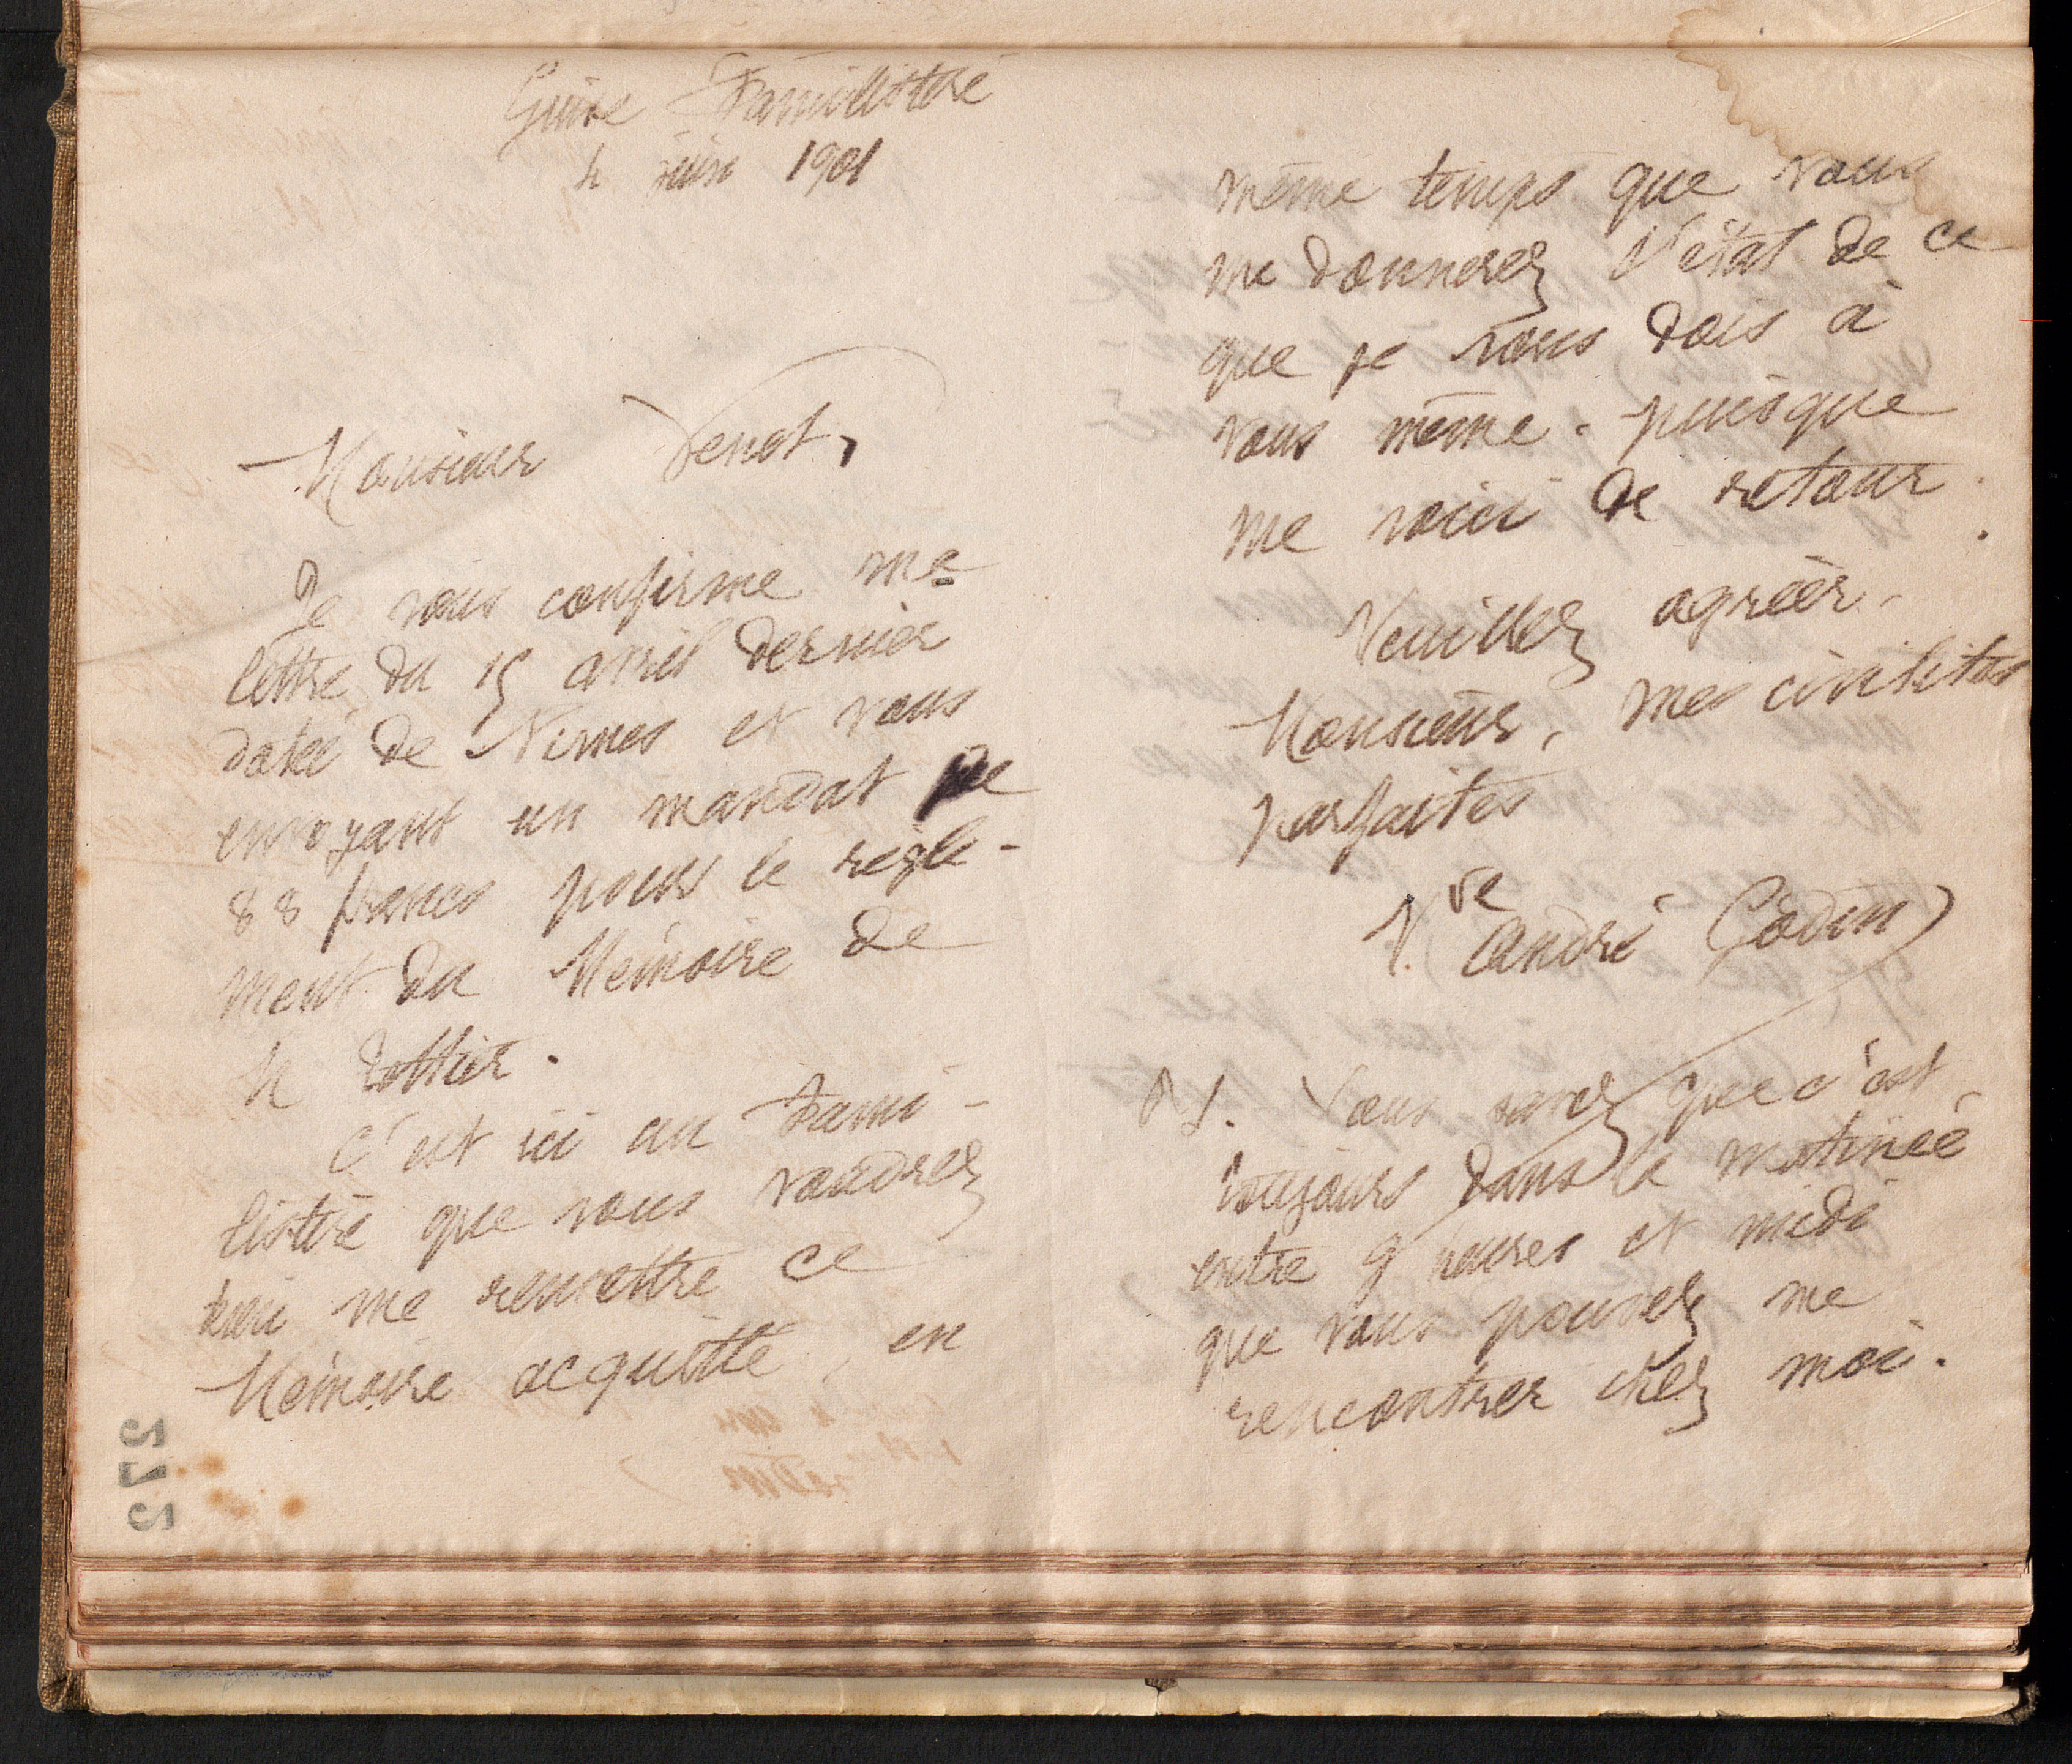 Guise Familistère
4 juin 1901
Monsieur Venot,
Je vous confirme ma
lettre du 15 avril dernier
datée de Nimes et vous
envoyant un mandat de
88 francs pour le règle-
ment du Mémoire de
M
C'est ici au Fami-
listère que vous voudrez
bien me remettre ce
Mémoire acquitté, en
même temps que vous
me donnerez l'état de ce
que je vous dois à
vous même. puisque
me voici de retour.
Veuillez agréer,
Monsieur, mes civilités
parfaites
Vve André Godin
PS. Vous savez que c'est
toujours dans la matinée
entre 9 heures et midi
que vous pouvez me
rencontrer chez moi.